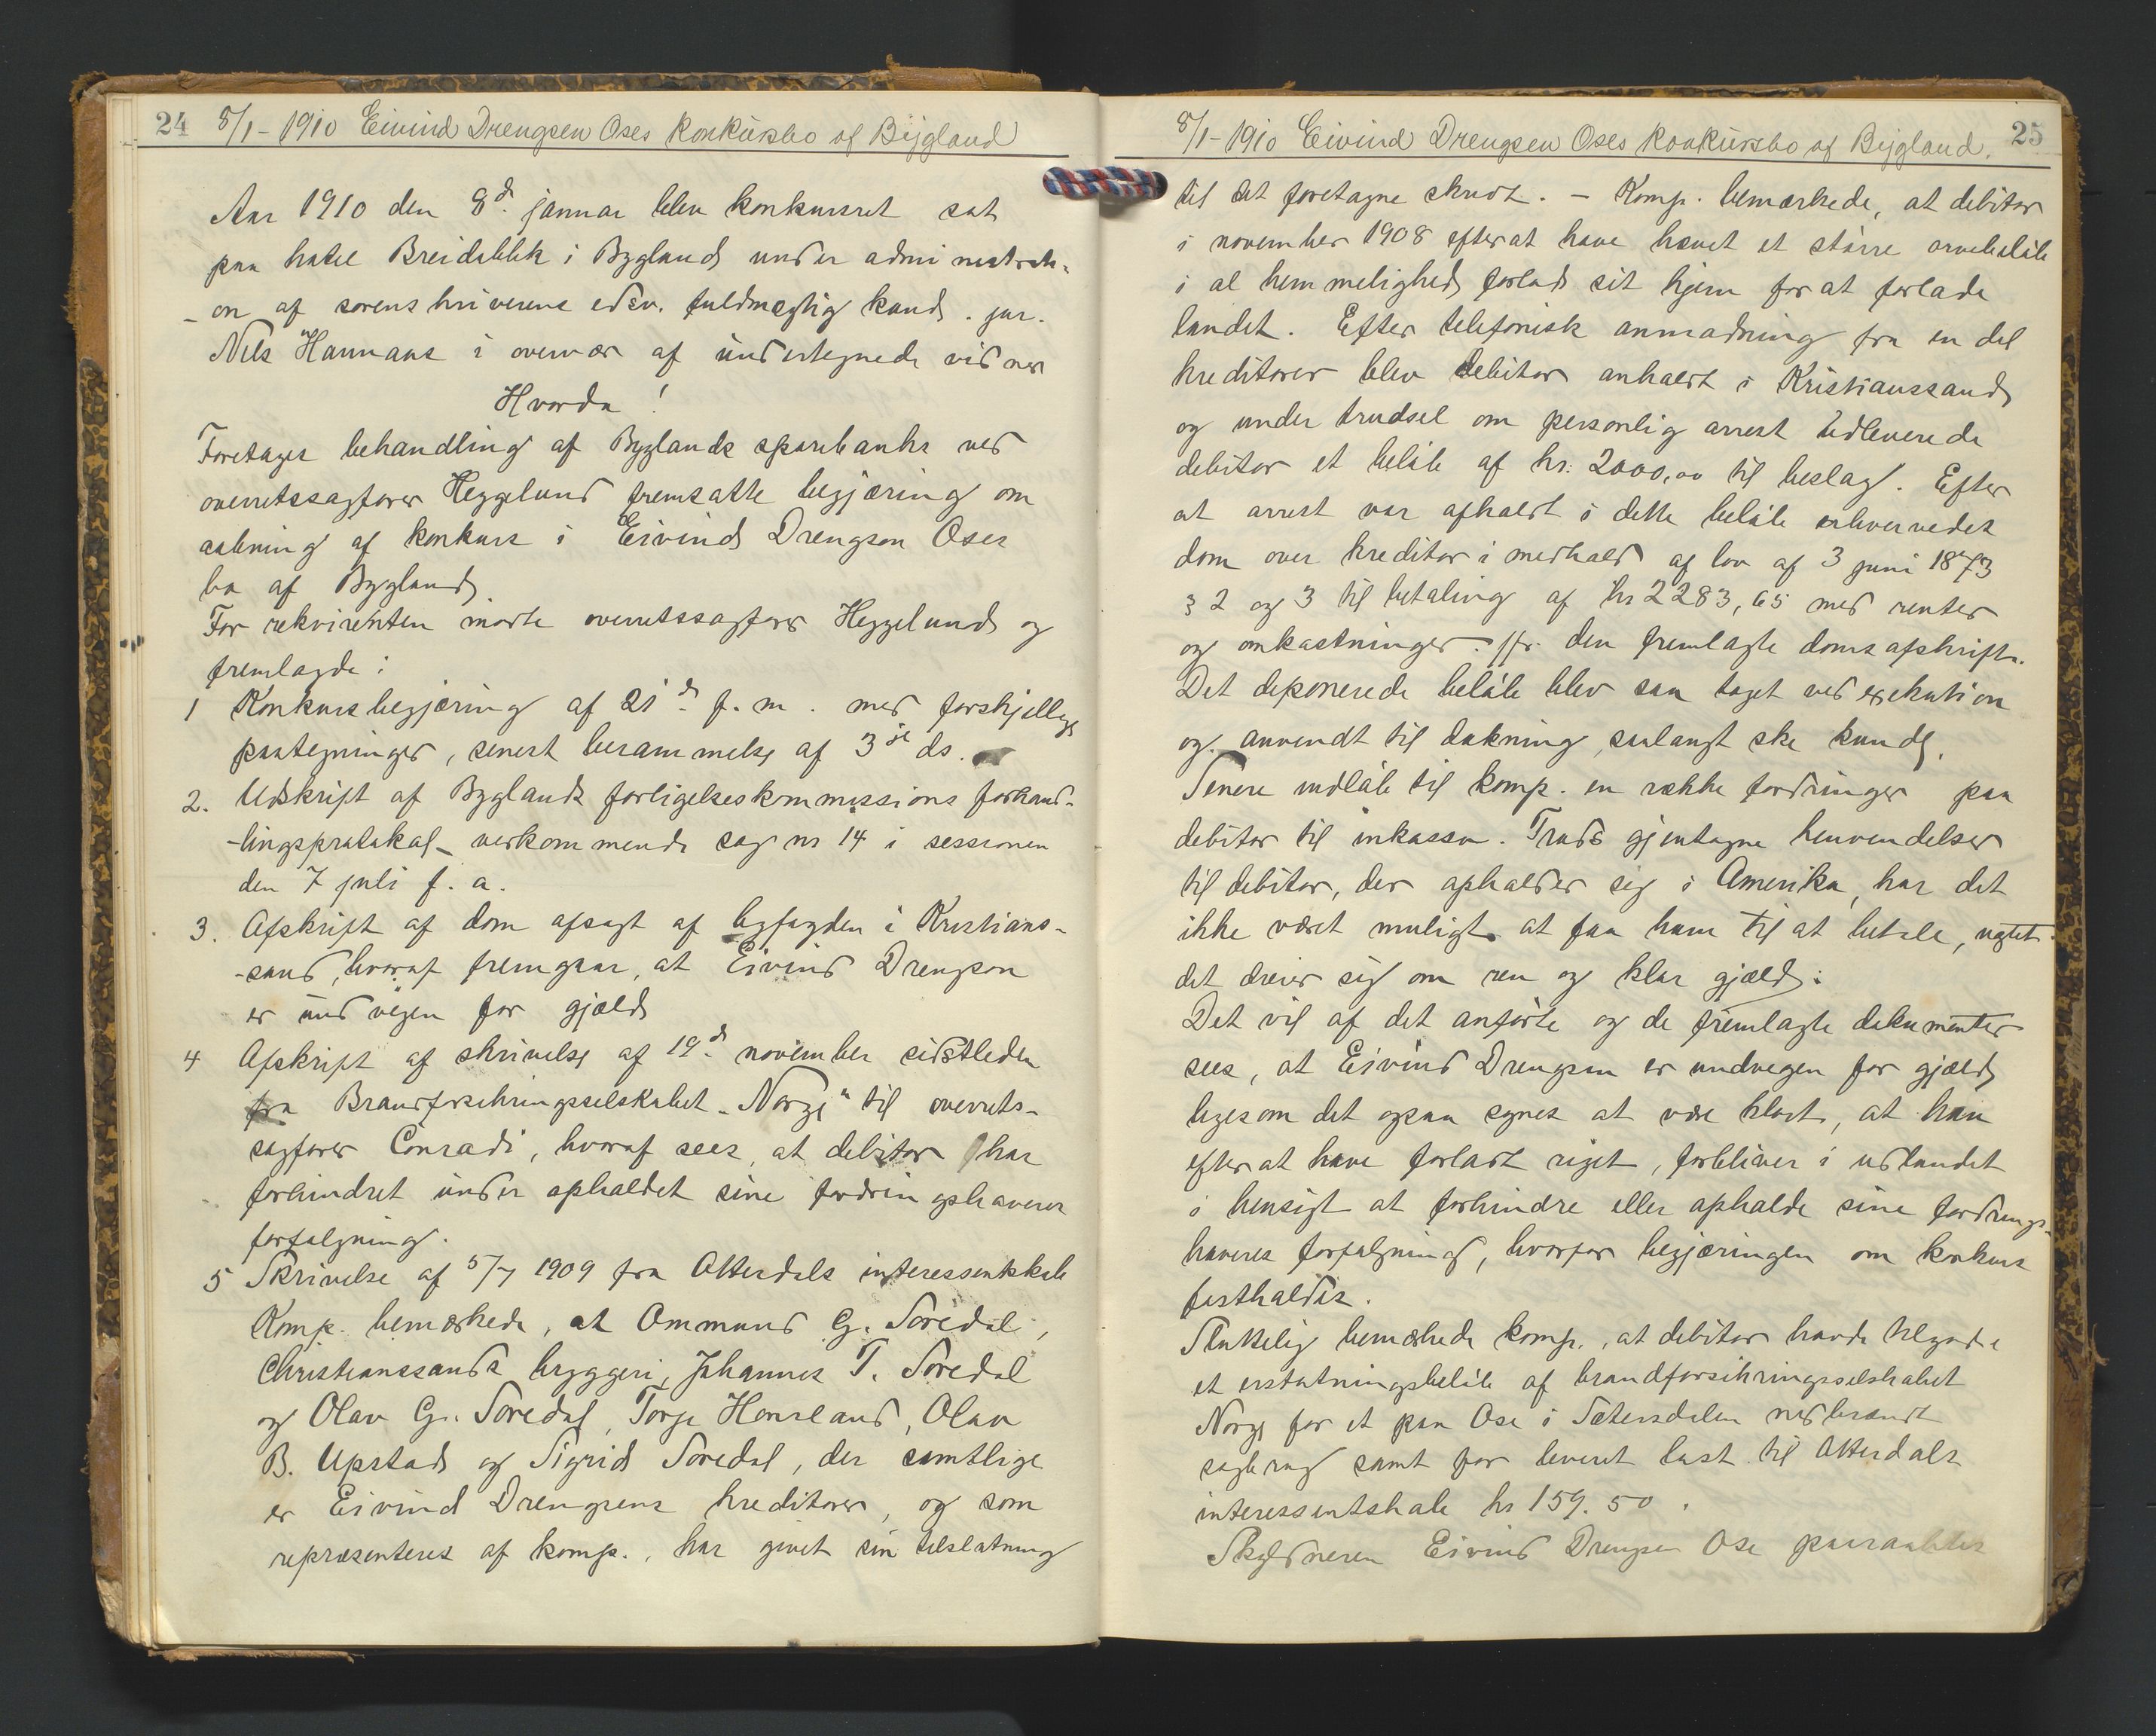 24 8/1-1910 Eivind Drengsen Oses Konkursbo af Bygland
Aar 1910 den 8d. januar blev konkursret sat
paa hotel Breidablik i Bygland under administrati-
-on af sorenskriverens edsv. fuldmægtig kand. jur.
Nils Hannaas i overvær af undertegnede vidner
Hvorda!
Foretages behandling af Byglands sparebanks ved
overretssagfører Heggelund fremsatte begjæring om
aabning af konkurs i Eivind Drengson Oses
bo af Bygland
For rekvirenten mødte overretssagfører Heggelund og
fremlagde:
1 Konkursbegjæring af 21d. f. m. med forskjellige
paategninger, senest berammelse af 3je ds.
2. Udskrift af Byglands forligelseskommissions forhand-
-lingsprotokol vedkommende sag nr 14 i sessionen
den 7 juli f. a.
3. Afskrift af dom afsagt af byfogden i Kristians-
-sand, hvoraf fremgaar, at Eivind Drengson
er undvegen for gjæld
4 Afskrift af skrivelse af 19d. november sidstleden
fra Brandforsikringsselskabet "Norge" til overrets-
sagfører Conradi, hvoraf sees, at debitor har
forhindret under opholdet sine fordringshaveres
forfølgning.
5 Skrivelse af 5/7 1909 fra Otterdals interessentskab
Komp. bemærkede, at Ommund G. Søredal,
Christianssands bryggeri, Johannes T. Søredal
og Olav G. Søredal, Torje Honseland, Olav
B. Upstad og Sigrid Søredal, der samtlige
er Eivind Drengsens kreditorer, og som
repræsenteres af komp., har givet sin tilslutning
8/1-1910 Eivind Drengsen Oses Konkursbo af Bygland. 25
til det foretagne skridt. - Komp. bemærkede, at debitor
i november 1908 efterat have hævet et større arvebeløb
i al hemmelighed forlod sit hjem for at forlade
landet. Efter telefonisk anmodning fra en del
kreditorer blev debitor anholdt i Kristianssand
og under trudsel om personlig arrest udleverede
debitor et beløb af kr. 2000,00 til beslag. Efter
at arrest var afholdt i dette beløb erhvervedes
dom over kreditor i medhold af lov af 3 juni 1873
§ 2 og 3 til betaling af kr 2283,65 med renter
og omkostninger. Jfr. den fremlagte domsafskrift.
Det deponerede beløb blev saa taget ved exekution
og anvendt til dækning saalangt ske kunde.
Senere indløb til komp. en række fordringer paa
debitor til inkasso. Trods gjentagne henvendelser
til debitor, der opholder sig i Amerika, har det
ikke været muligt at faa ham til at betale, uagtet
det dreier sig om ren og klar gjæld.
Det vil af det anførte og de fremlagte dokumenter
sees, at Eivind Drengsen er undvegen for gjæld
ligesom det ogsaa synes at være klart, at han
efter at have forladt riget, forbliver i udlandet
i hensigt at forhindre eller opholde sine fordrings-
haveres forfølgning, hvorfor begjæringen om konkurs
fastholdes.
Sluttelig bemærkede komp., at debitor havde tilgode
et erstatningsbeløb af brandforsikringsselskabet
Norge for et paa Ose i Sætersdalen nedbrændt
sagbrug samt for leveret last til Otterdals
interessentskab kr 159.50.
Skyldneren Eivind Drengsen Ose paaraabtes